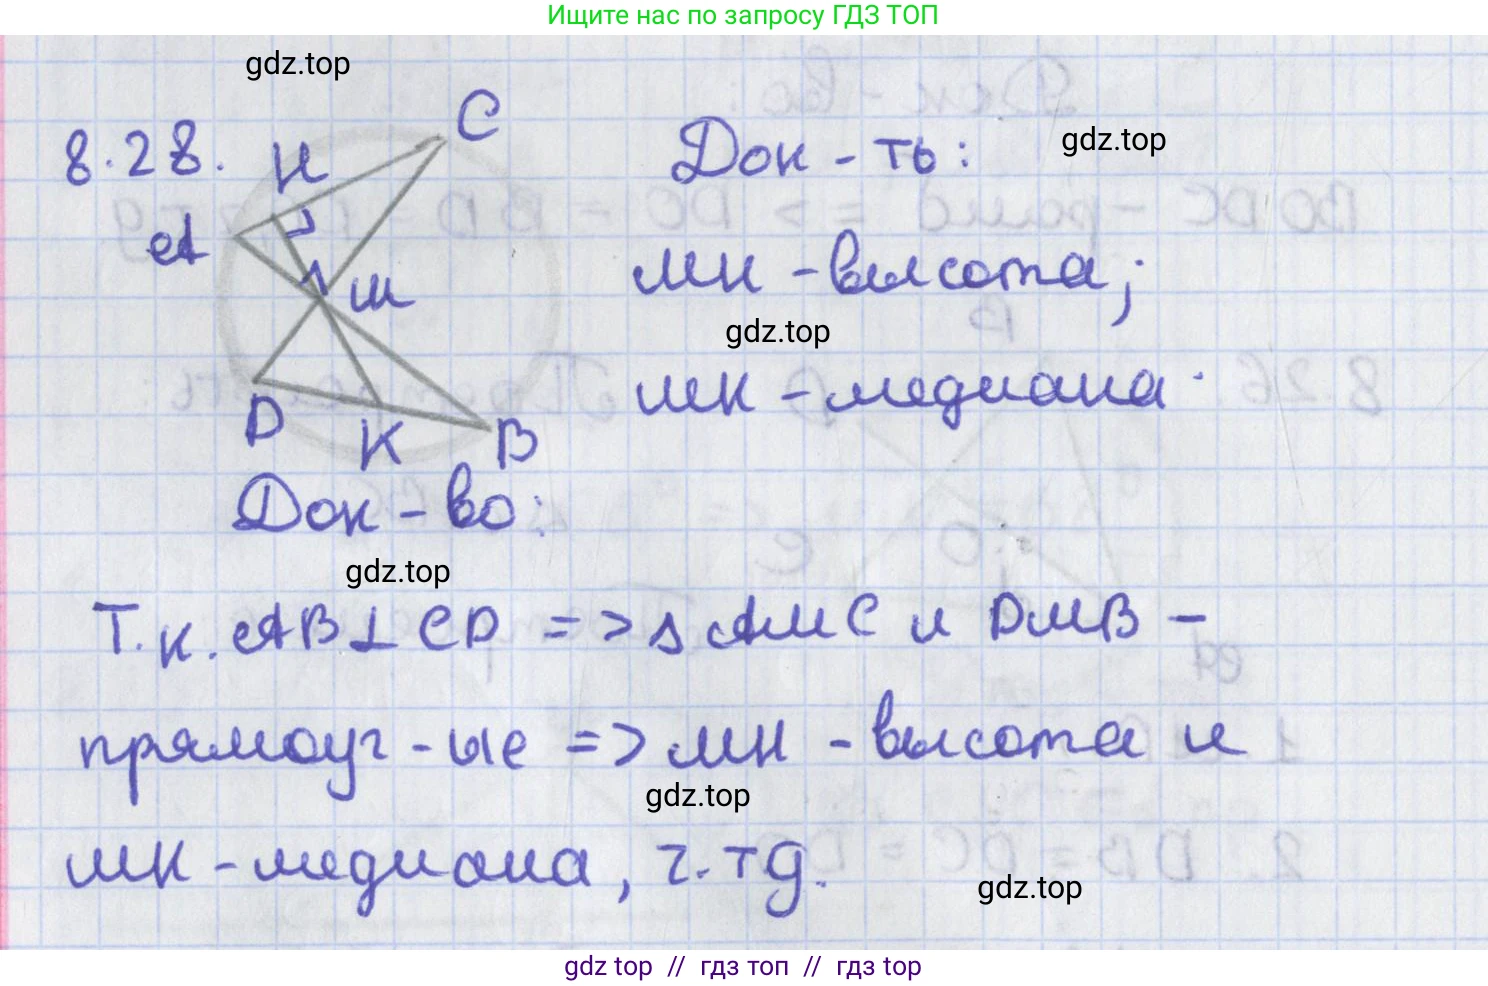 Ищите нас по запросу ГДЗ ТОП
gdz.top
8.28.
H
C
A
M
D
K
B
Док-ть:
gdz.top
MH - высота;
gdz.top
MK - медиана.
Док-во:
gdz.top
Т.к. AB⊥CD => △ AMC и DMB -
прямоуг-ые => MH - высота и
gdz.top
MK - медиана, ч.тд.
gdz.top
gdz top // гдз топ // гдз top